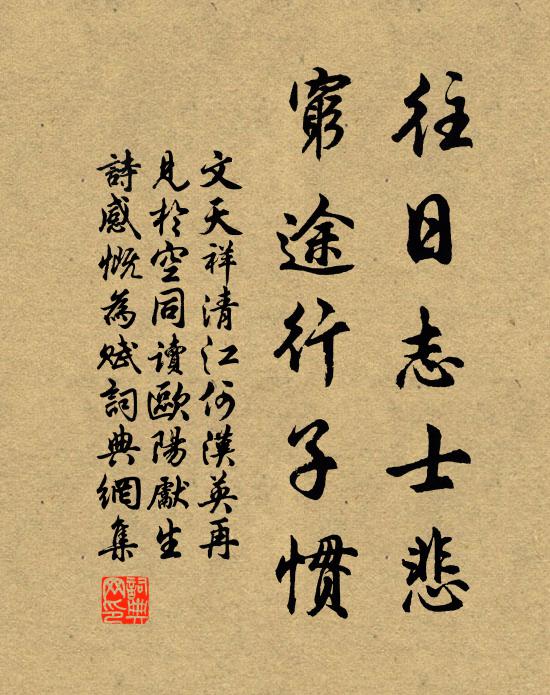 往日志士悲
窮途行子慣
文天祥清江何漢英再
見於空同讀歐陽獻生
詩感慨為賦詞典網集